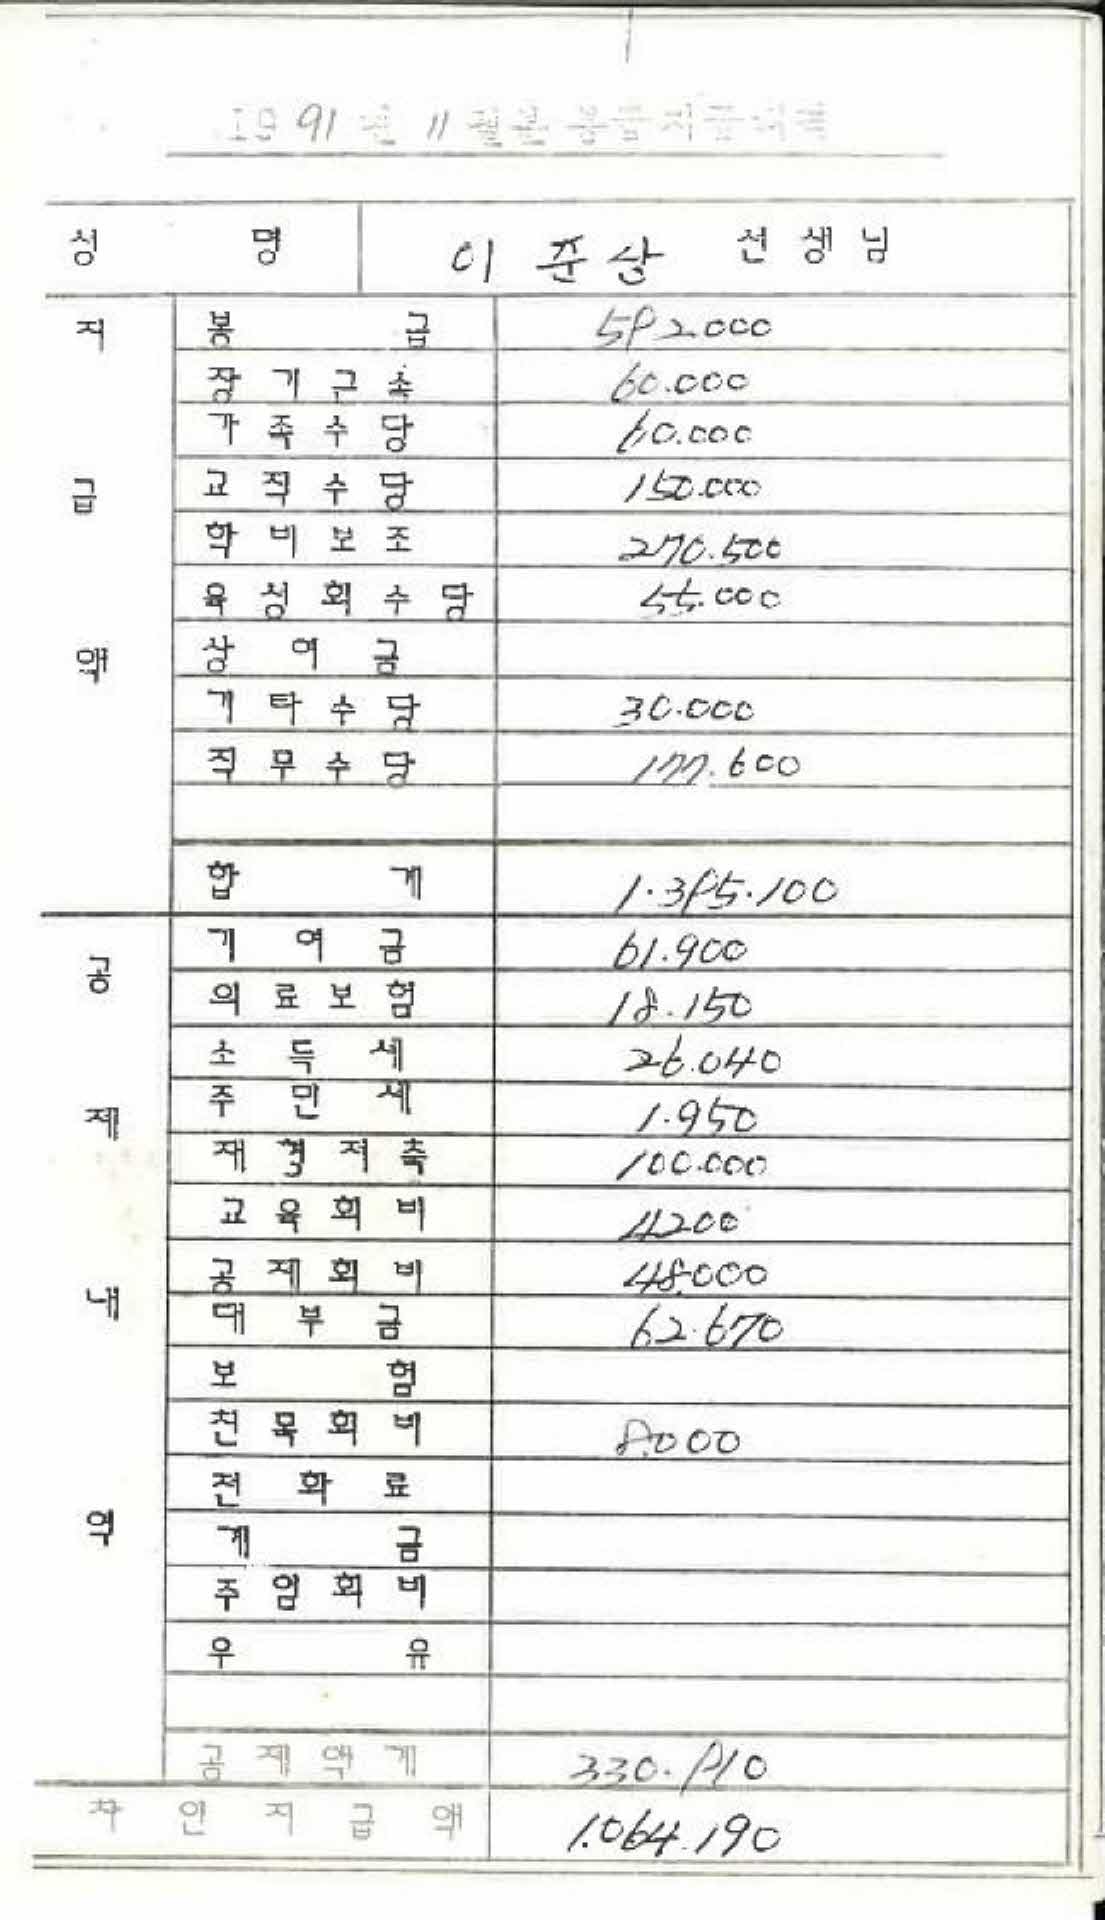 19 91 년 11 월분 봉급지급
성 명 이 준상 선생님
지 봉 급 592.000
장기근속 60.000
가족수당 60.000
급 교직수당 150.000
학비보조 270.500
육성회수당 55.000
액 상 여 금
기타수당 30.000
직무수당 177.600
합 계 1.395.100
공 기 여 금 61.900
의료보험 18.150
소 득 세 26.040
제 주 민 세 1.950
재형저축 100.000
교육회비 4200
내 공제회비 48.000
대 부 금 62.670
보 험
친목회비 8.000
전 화 료
역 계 금
주임회비
우 유
공 제 액 계 330.910
차 인 지 급 액 1.064.190